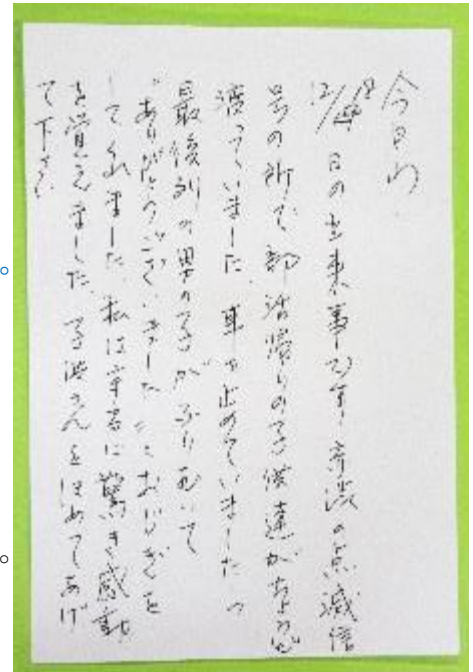 今日わ
12/18日の出来事です。
号の所で部活帰りの子供達がちょうど
渡っていました。車を止めていましたら
最後列の男の子がふり向いて
"ありがとうございました"とおじぎを
してくれました。私は非常に驚き感動
を覚えました。子供さんをほめてあげ
て下さい